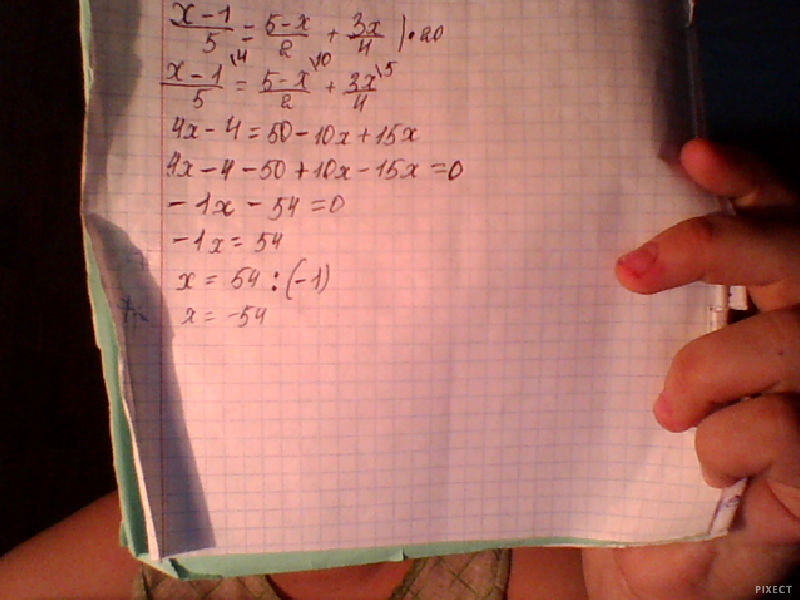 x-1/5 = 5-x/2 + 3x/4 |·20
x-1\4/5 = 5-x\10/2 + 3x\5/4
4x-4=50-10x+15x
4x-4-50+10x-15x=0
-1x-54=0
-1x=54
x=54:(-1)
x=-54
PIXECT